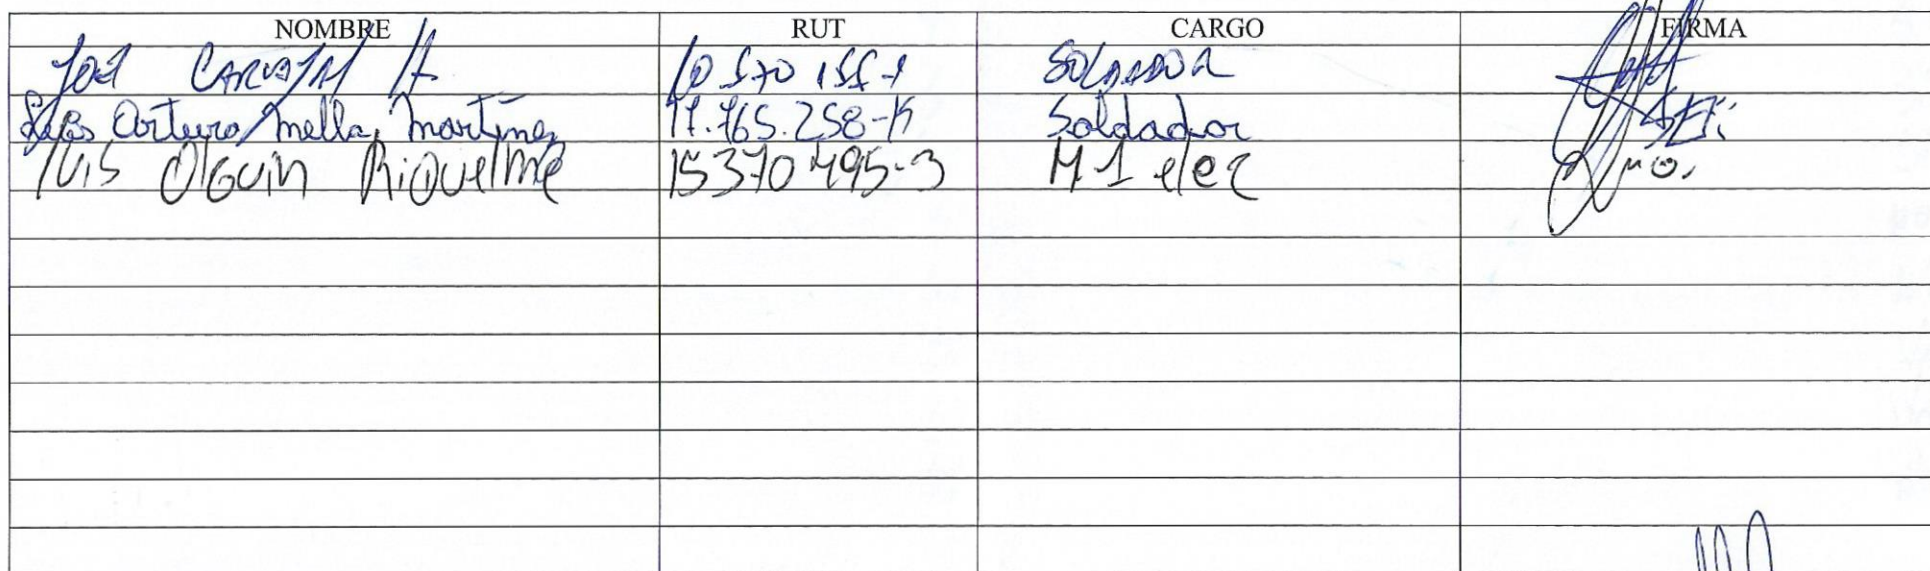 NOMBRE RUT CARGO FIRMA
José CARVAJAL H SOLDADOR
Luis Arturo Mella Martinez 17.765.258-K Soldador
luis Olguin Riquelme 15370495-3 M1 elec